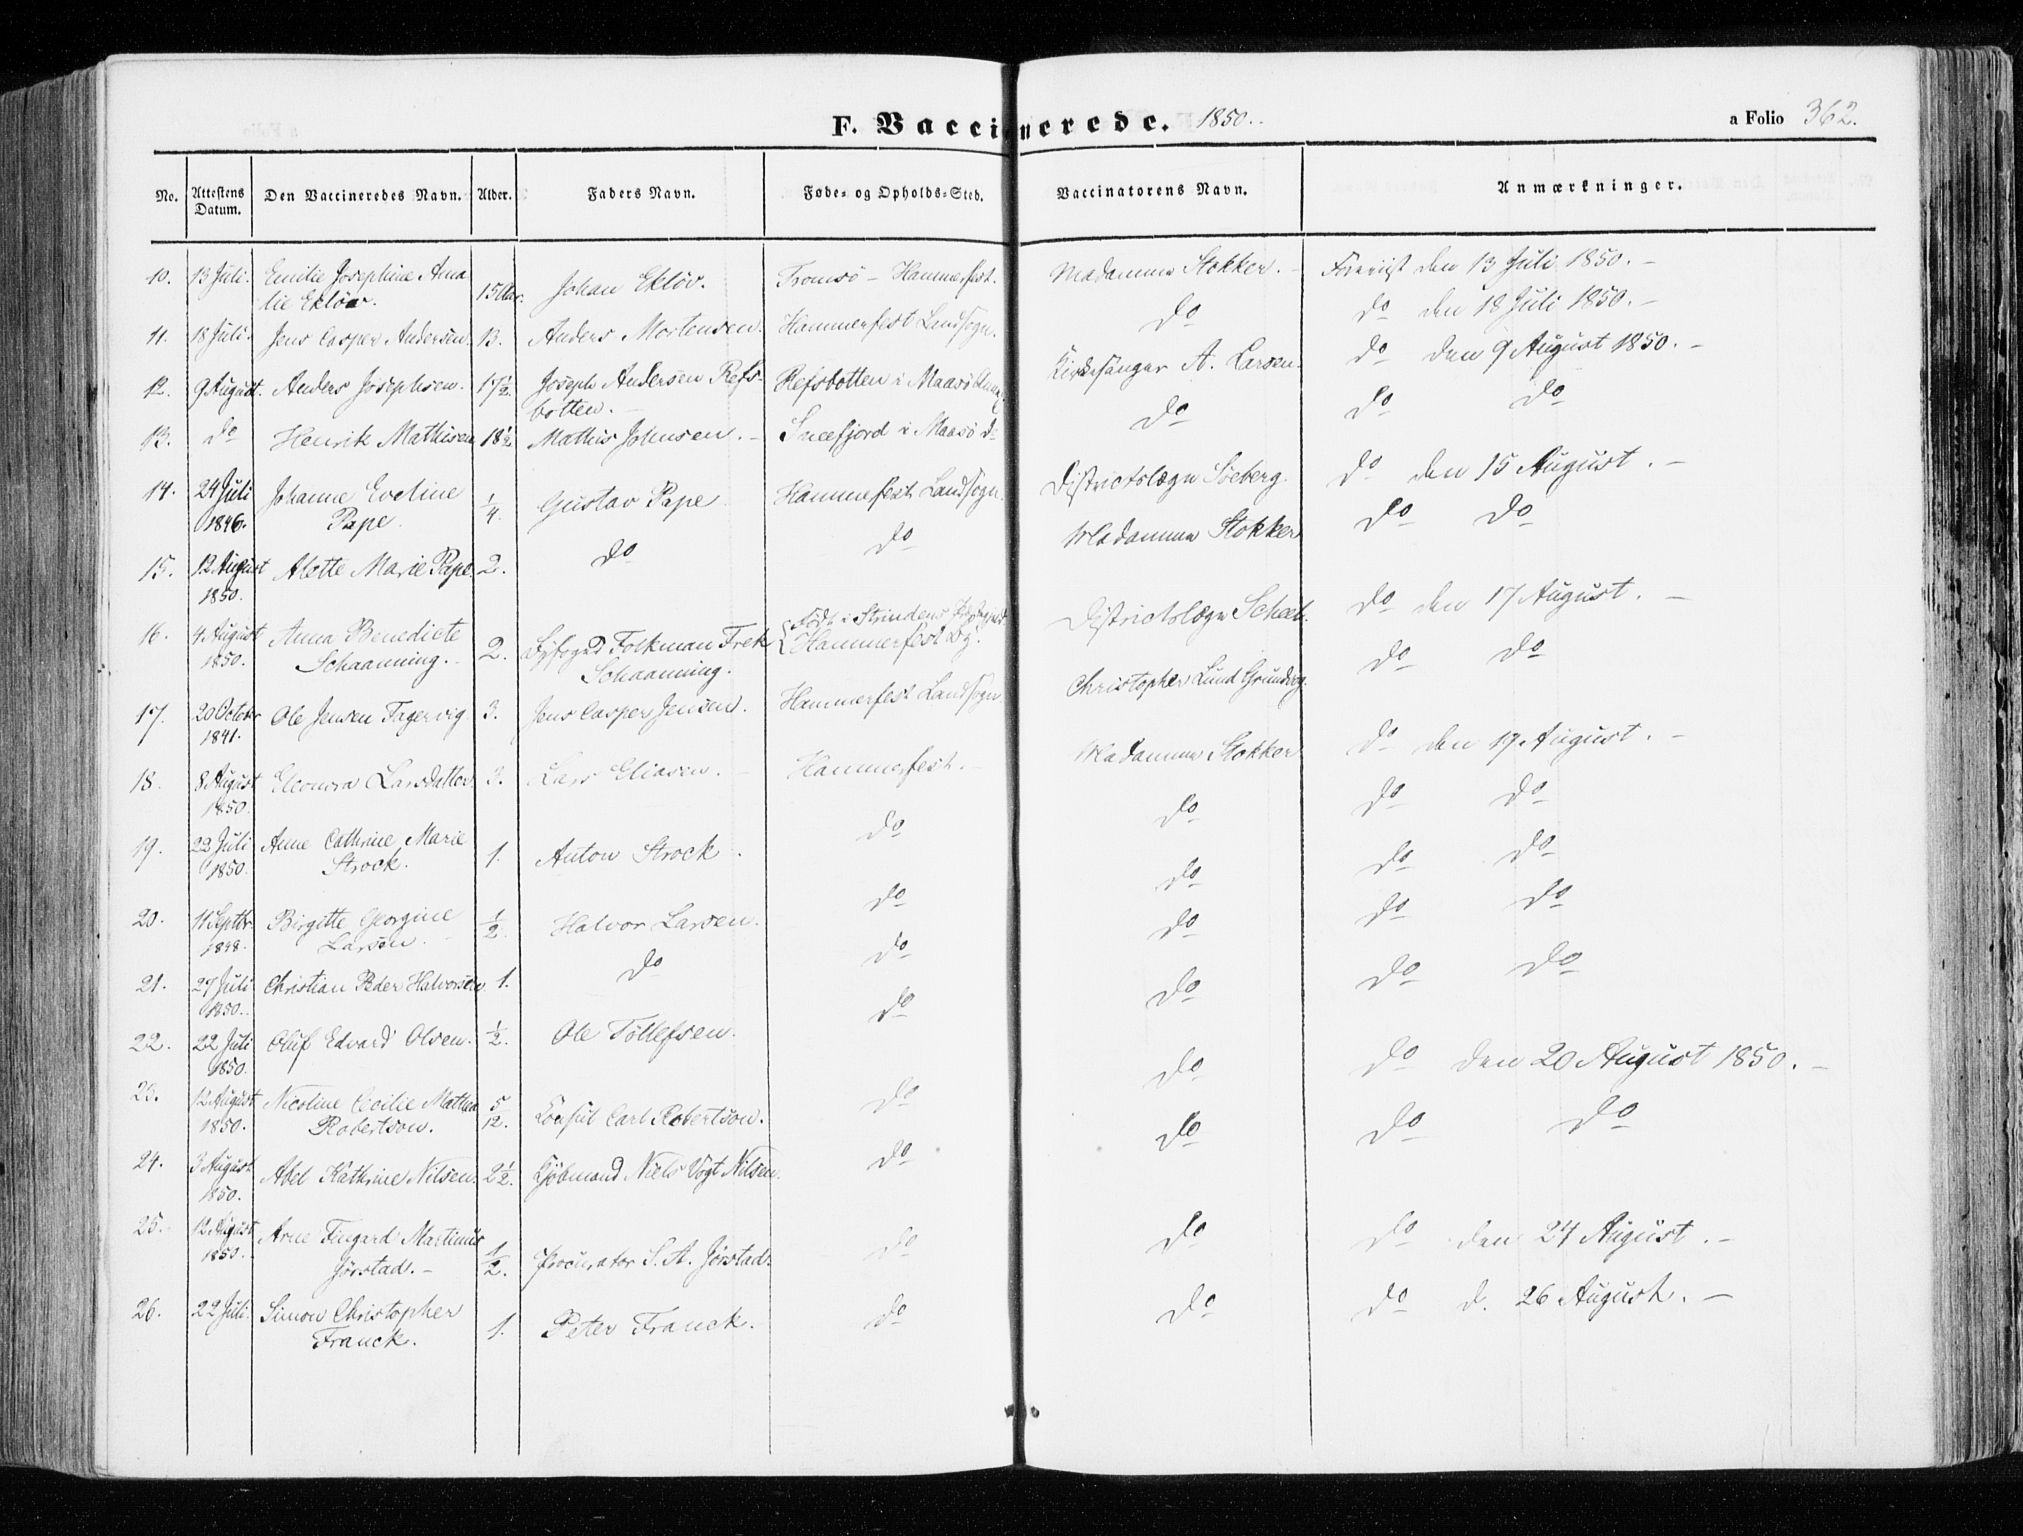 F. Vaccinerede. 1850.
a Folio 362.
No. Attestens Datum. Den Vaccineredes Navn. Alder. Faders Navn. Føde- og Opholds-Sted. Vaccinatorens Navn. Anmærkninger.
10. 13 Juli. Emilie Josephine Ama 15 Aar. Johan Ekløv. Tromsø - Hammerfest. Madamme Stokker. - Foreviist den 13 Juli 1850. -
lie Ekløv.
11. 18 Juli. Jens Casper Andersen. 13. Anders Mortensen. Hammerfest Landsogn. do do den 18 Juli 1850. -
12. 9 August. Anders Josephsen. 17 1/2. Joseph Andersen Refs- Refsbotten i Maasø Kirkesanger A. Larsen. do den 9 August 1850. -
botten. -
13. do Henrik Mathisen 18 1/2 Mathis Johnsen. - Sneefjord i Maasø do do do do
14. 24 Juli Johanne Eveline 1/4. Gustav Pape Hammerfest Landsogn. Districtslæge Soeberg. do den 15 August. -
1846. Pape.
15. 12 August Alette Marie Pape. 2. do do Madamme Stokker do do
1850.
16. 4 August Anna Benedicte 2. Byfoged Folkman Frek {Født i Strindens Præstegjeld Districtslæge Scheel. do den 17 August. -
1850. Schaanning. - Schaanning. Hammerfest By.
17. 20 October Ole Jensen Fagervig 3. Jens Casper Jensen. Hammerfest Landsogn Christopher Lund Grundvig. do do
1841.
18. 8 August Eleonora Larsdatter 3. Lars Eliasen. - Hammerfest. - Madamme Stokker do den 19 August. -
1850.
19. 22 Juli Anne Cathrine Marie 1. Anton Strock. do do do do
1850. Strock.
20. 11 Septbr. Birgette Georgine 1/2. Halvor Larsen. do do do do
1848. Larsen.
21. 27 Juli Christian Peder Halvorsen 1. do do do do do
1850.
22. 22 Juli Oluf Edvard Olsen. 1/2. Ole Tollefsen. do do do do
1850.
23. 12 August Nicoline Cecilie Mathea 5/12. Konsul Carl Robertson. do do do den 20 August 1850. -
1850. Robertson.
24. 3 August Abel Kathrine Nilsen. 2 1/2. Kjøbmand Niels Vogt Nilsen. do do do do
1850.
25. 12 August Arne Fingard Martinus 1/2. Procurator S. A. Jørstad. do do do den 24 August. -
1850. Jørstad. -
26. 22 Juli. Simon Christopher 1. Peter Franck. do do do d. 26 August. -
Franck.